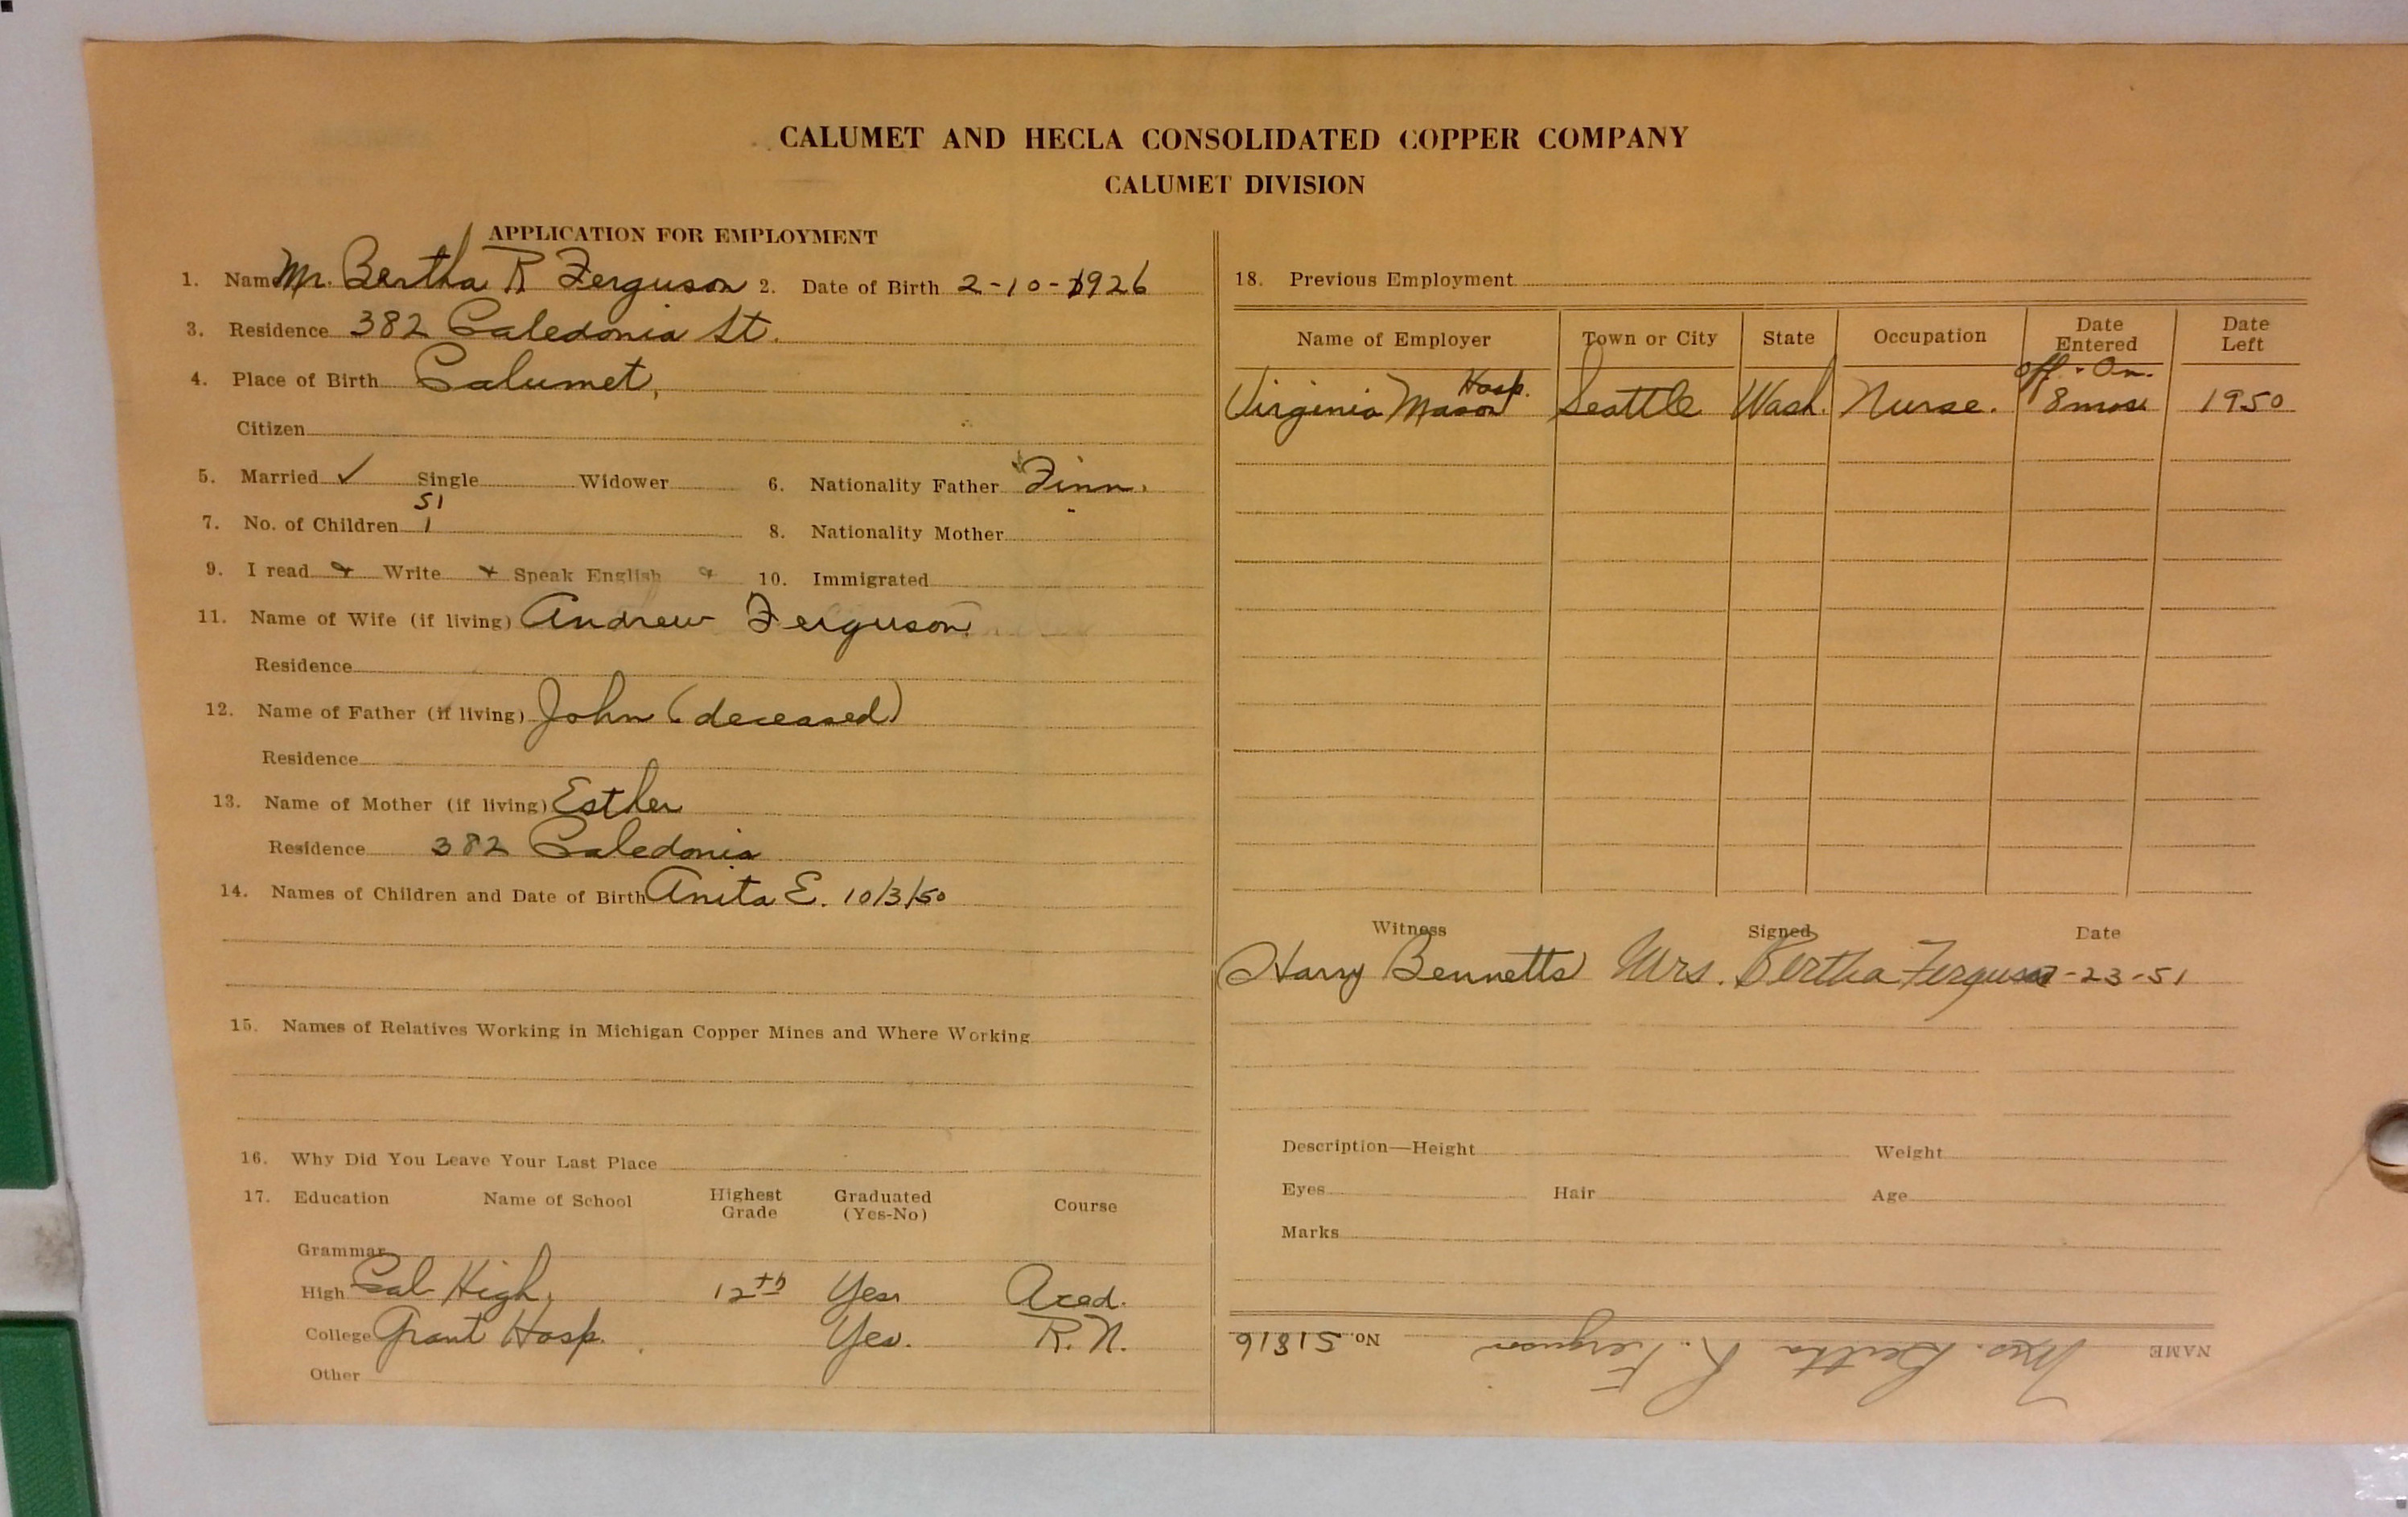 CALUMET AND HECLA CONSOLIDATED COPPER COMPANY
CALUMET DIVISION
APPLICATION FOR EMPLOYMENT
1. Name Mr. Bertha R Ferguson 2. Date of Birth 2-10-1926
3. Residence 382 Caledonia St.
4. Place of Birth Calumet,
Citizen
5. Married ✓ Single Widower 6. Nationality Father Finn.
51
7. No. of Children 1 8. Nationality Mother
9. I read Write Speak English 10. Immigrated
11. Name of Wife (if living) Andrew Ferguson
Residence
12. Name of Father (if living) John (deceased)
Residence
13. Name of Mother (if living) Esther
Residence 382 Caledonia
14. Names of Children and Date of Birth Anita E. 10/3/50
15. Names of Relatives Working in Michigan Copper Mines and Where Working
16. Why Did You Leave Your Last Place
17. Education Name of School Highest Grade Graduated (Yes-No) Course
Grammar
High Cal High, 12th Yes Acad.
College Grant Hosp. Yes. R.N.
Other
18. Previous Employment
Name of Employer Town or City State Occupation Date Entered Date Left
Virginia Mason Hosp. Seattle Wash. Nurse. off - On. 8 mos 1950
Witness Signed Date
Harry Bennetts Mrs. Bertha Ferguson -23-51
Description—Height Weight
Eyes Hair Age
Marks
NAME Mrs. Bertha R. Ferguson No. 51816